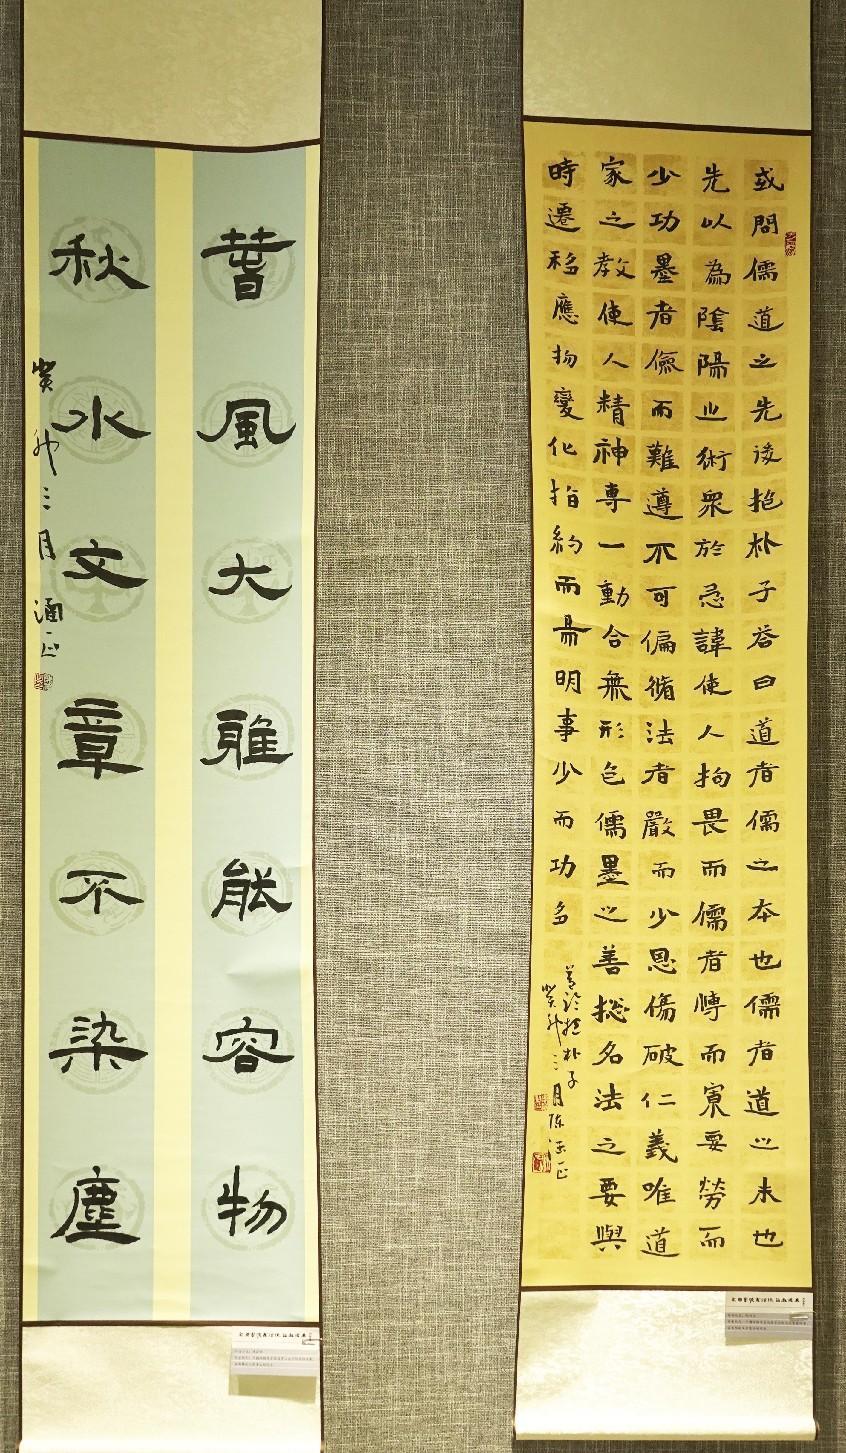 或問儒道之先後抱朴子荅曰道者儒之本也儒者道之末也
先以為陰陽之術衆於忌諱使人拘畏而儒者博而寡要勞而
少功墨者儉而難遵不可偏循法者嚴而少恩傷破仁義唯道
家之教使人精神專一動合無形包儒墨之善総名法之要與
時遷移應物變化指約而易明事少而功多
抱朴子
癸卯三月陈
萅風大雅能容物
秋水文章不染塵
癸卯三月涵正